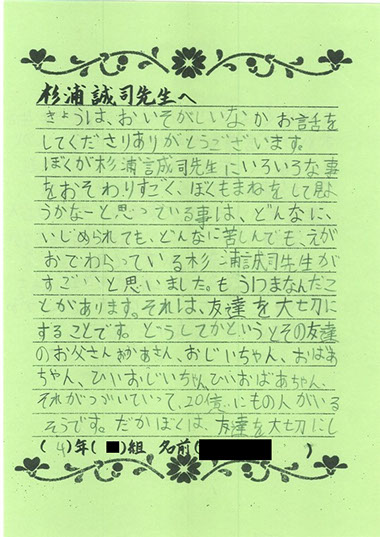 杉浦誠司先生へ
きょうは、おいそがしいなか お話を
してくださりありがとうございます。
ぼくが杉浦誠司先生にいろいろな事
をおそわりすごく、ぼくもまねをして見よ
うかなーと思っている事は、どんなに、
いじめられても、どんなに苦しんでも、えが
おでわらっている杉浦誠司先生が
すごいと思いました。もう1つまなんだこ
とがあります。それは、友達を大切に
することです。どうしてかというとその友達
のお父さんお母さん、おじいちゃん、おばあ
ちゃん、ひいおじいちゃんひいおばあちゃん、
それがつづいていって、20億にもの人がいる
そうです。だかぼくは、友達を大切にし
(4)年( )組 名前( )